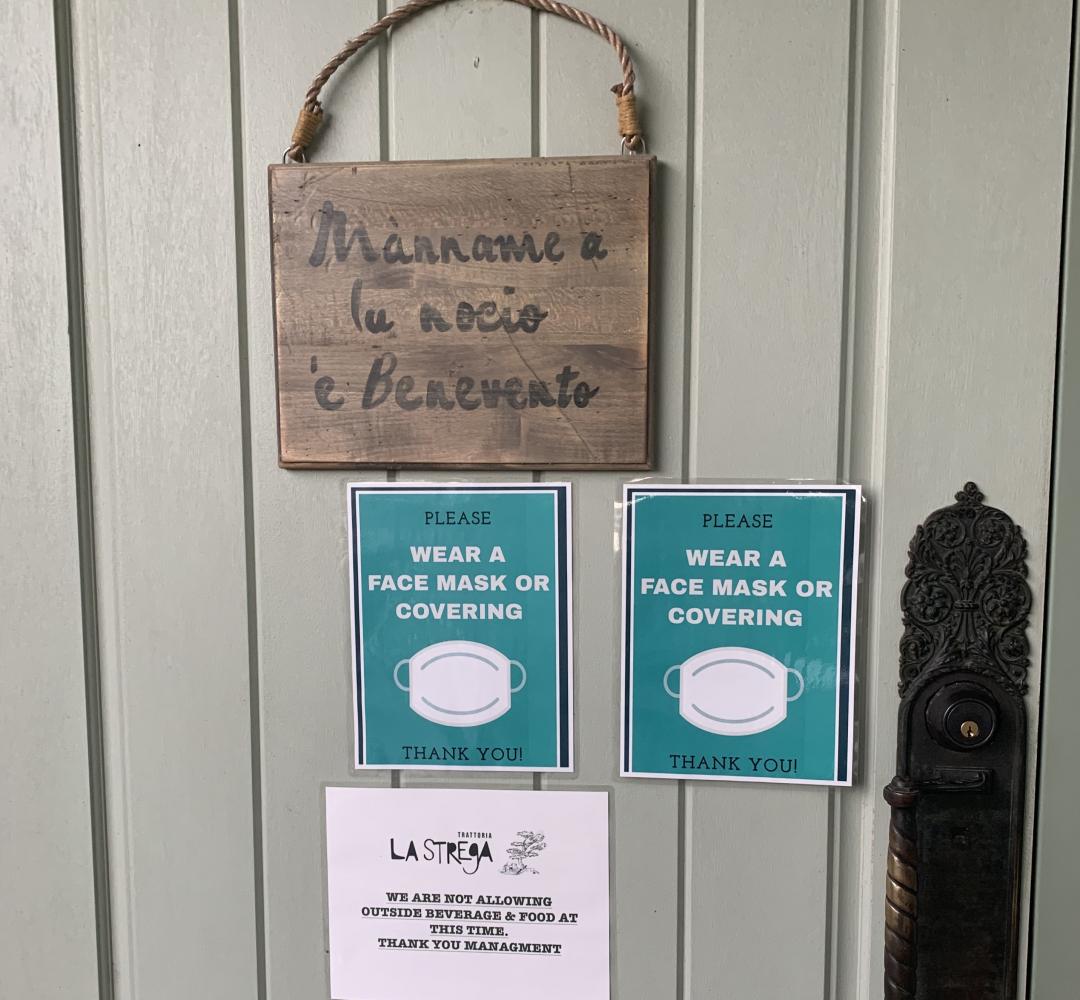 Mànname a
lu nocio
'e Benevento
PLEASE
WEAR A
FACE MASK OR
COVERING
THANK YOU!
PLEASE
WEAR A
FACE MASK OR
COVERING
THANK YOU!
TRATTORIA
LA STREGA
WE ARE NOT ALLOWING
OUTSIDE BEVERAGE & FOOD AT
THIS TIME.
THANK YOU MANAGMENT